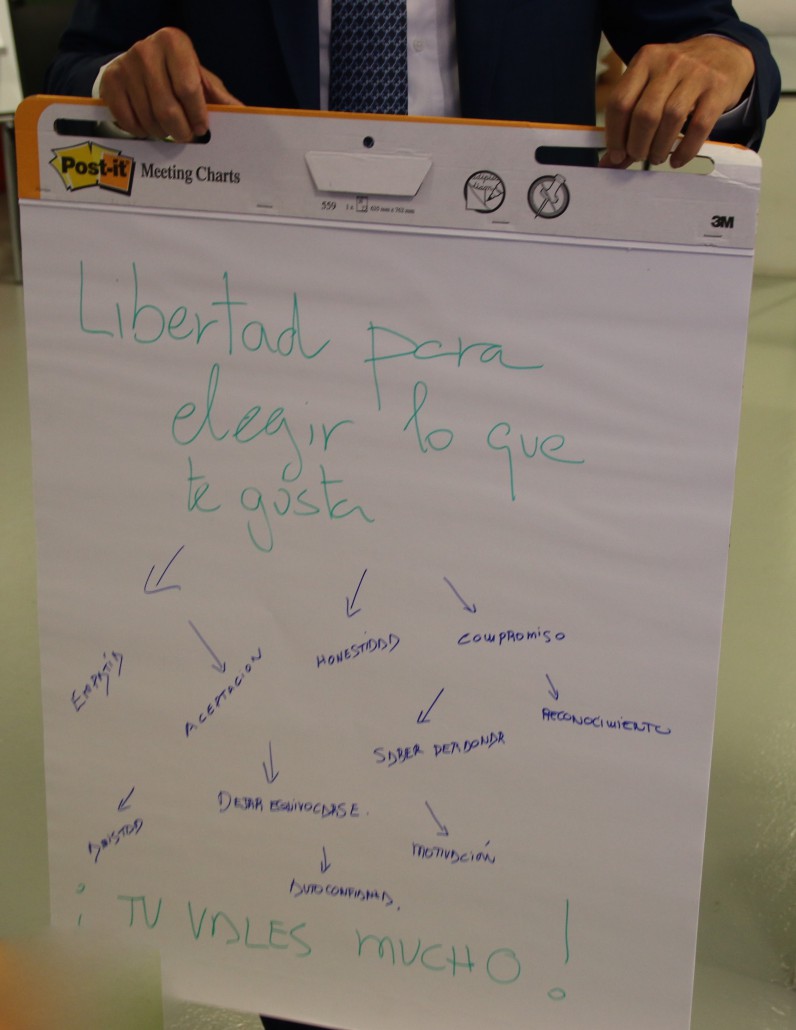 Post-it Meeting Charts
559
3M
Libertad para
elegir lo que
te gusta
EMPATÍA
ACEPTACION
HONESTIDAD
COMPROMISO
RECONOCIMIENTO
SABER PERDONAR
DEJAR EQUIVOCARSE.
MOTIVACIÓN
AMISTAD
¡TU VALES MUCHO!